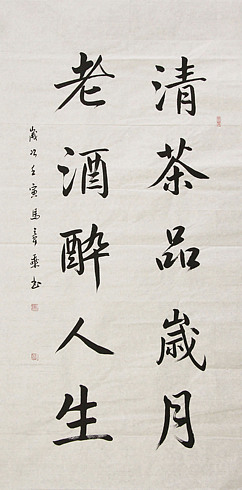 清茶品歲月
老酒醉人生
歲次壬寅馬奇乘书